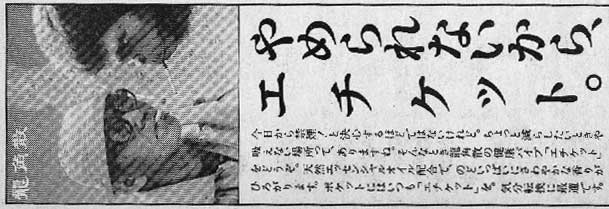 やめられないから、
エチケット。
今日から禁煙!と決心するほどではないけれど。ちょっと減らしたいときや
吸えない場所って、ありますね。そんなとき龍角散の健康パイプ「エチケット」
をどうぞ。天然エッセンシャルオイル配合で、のどいっぱいにさわやかな香りが
ひろがります。ポケットにはいつも「エチケット」を。気分転換に最適です。
龍角散